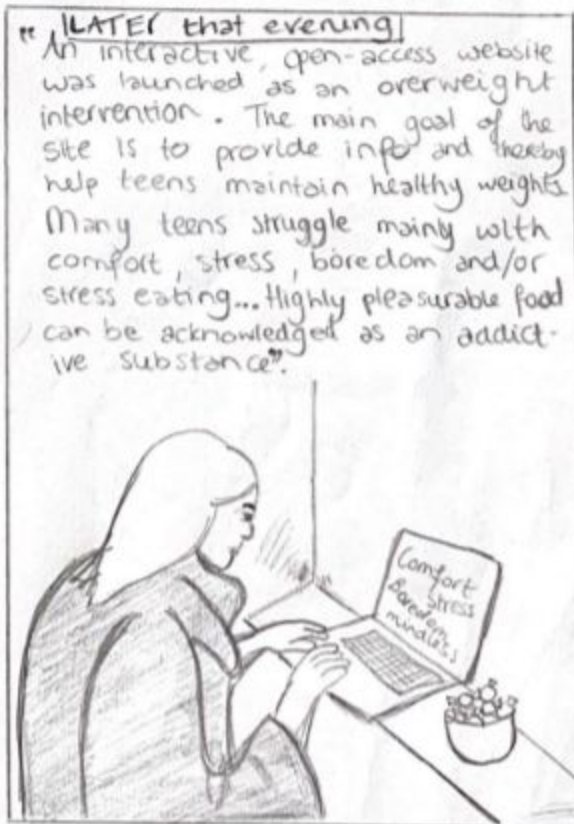 LATER that evening
"An interactive, open-access website
was launched as an overweight
intervention. The main goal of the
site is to provide info and thereby
help teens maintain healthy weights
Many teens struggle mainly with
comfort, stress, boredom and/or
stress eating... Highly pleasurable food
can be acknowledged as an addict-
ive substance".
Comfort
Stress
Boredom
mindless